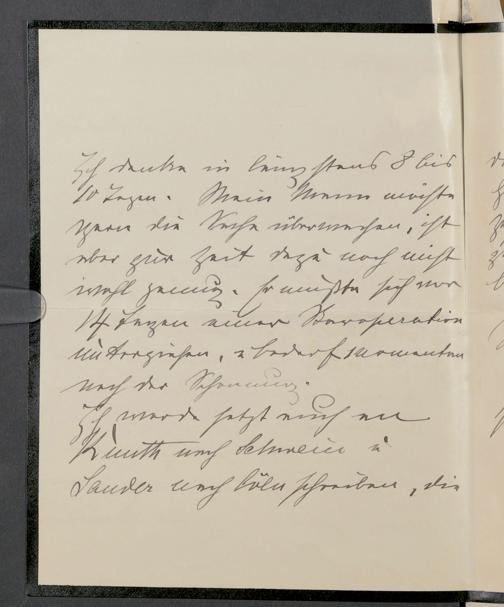 Ich denke in längstens 8 bis
10 Tagen. Mein Mann möchte
gern die Sache überwachen, ist
aber zur Zeit dazu noch nicht
wohl genug. Er mußte sich vor
14 Tagen einer Staroperation
unterziehen, u bedarf momentan
noch der Schonung.
Ich werde jetzt auch an
Knuth nach Schwerin u
Sander nach Cöln schreiben, die